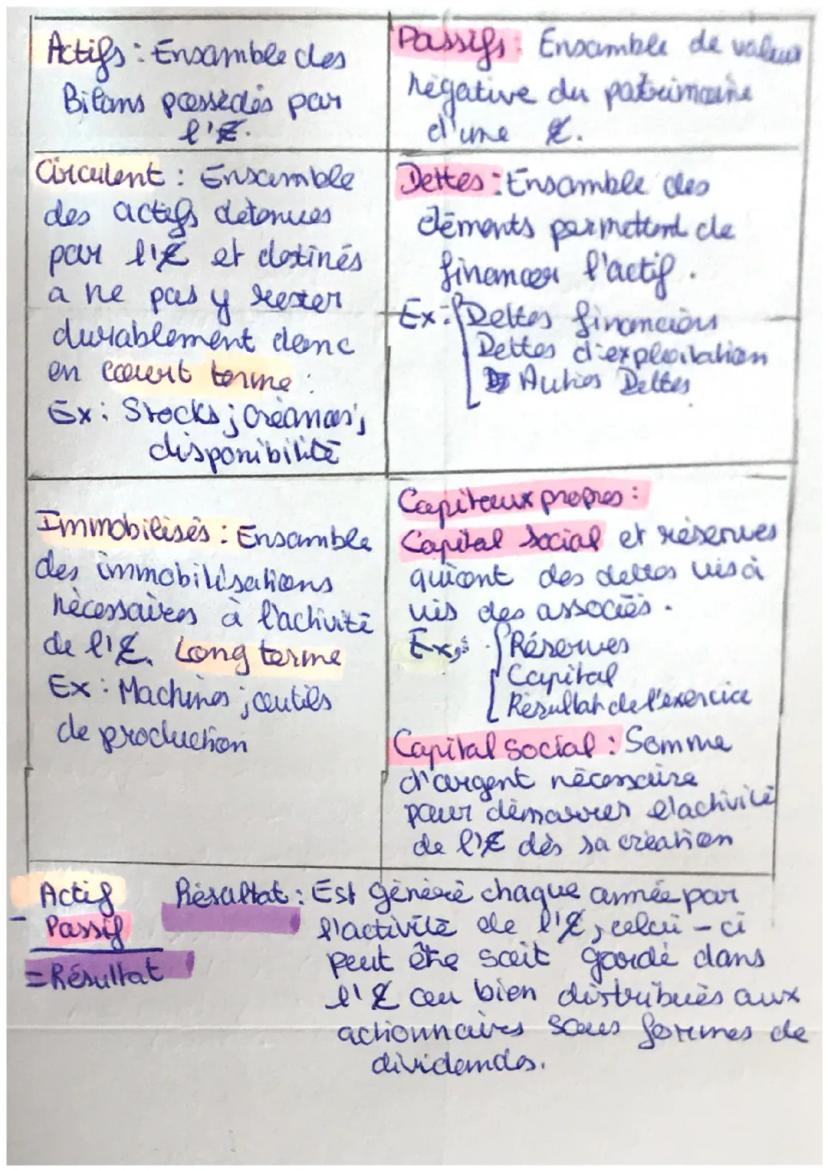 Actifs : Ensamble des
Bilans possédés par
l'E.
Passifs : Ensamble de valeur
négative du patrimoine
d'une E.
Circulent : Ensamble
des actifs détenues
par l'E et destinés
a ne pas y rester
durablement donc
en court terme :
Ex : Stocks ; Créances ;
disponibilité
Dettes : Ensamble des
éléments permettend de
financer l'actif.
Ex : Dettes financiers
Dettes d'exploitation
Autres Dettes
Immobilisés : Ensamble
des immobilisations
nécessaires à l'activité
de l'E. Long terme
Ex : Machines ; outils
de production
Capitaux propres :
Capital Social et réserves
qui ont des dettes vis à
vis des associés.
Ex : Réserves
Capital
Résultat de l'exercice
Capital Social : Somme
d'argent nécessaire
pour démarrer l'activité
de l'E dès sa création
Actif
- Passif
= Résultat
Résultat : Est généré chaque année par
l'activité de l'E, celui-ci
peut être soit gardé dans
l'E ou bien distribués aux
actionnaires sous formes de
dividendes.